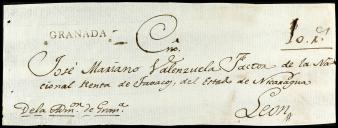 GRANADA
Cno.
10. rs
José Mariano Valenzuela Factor de la Na
cional Renta de Tavacos, del Estado de Nicaragua
De la Admon. de Grana.
Leon